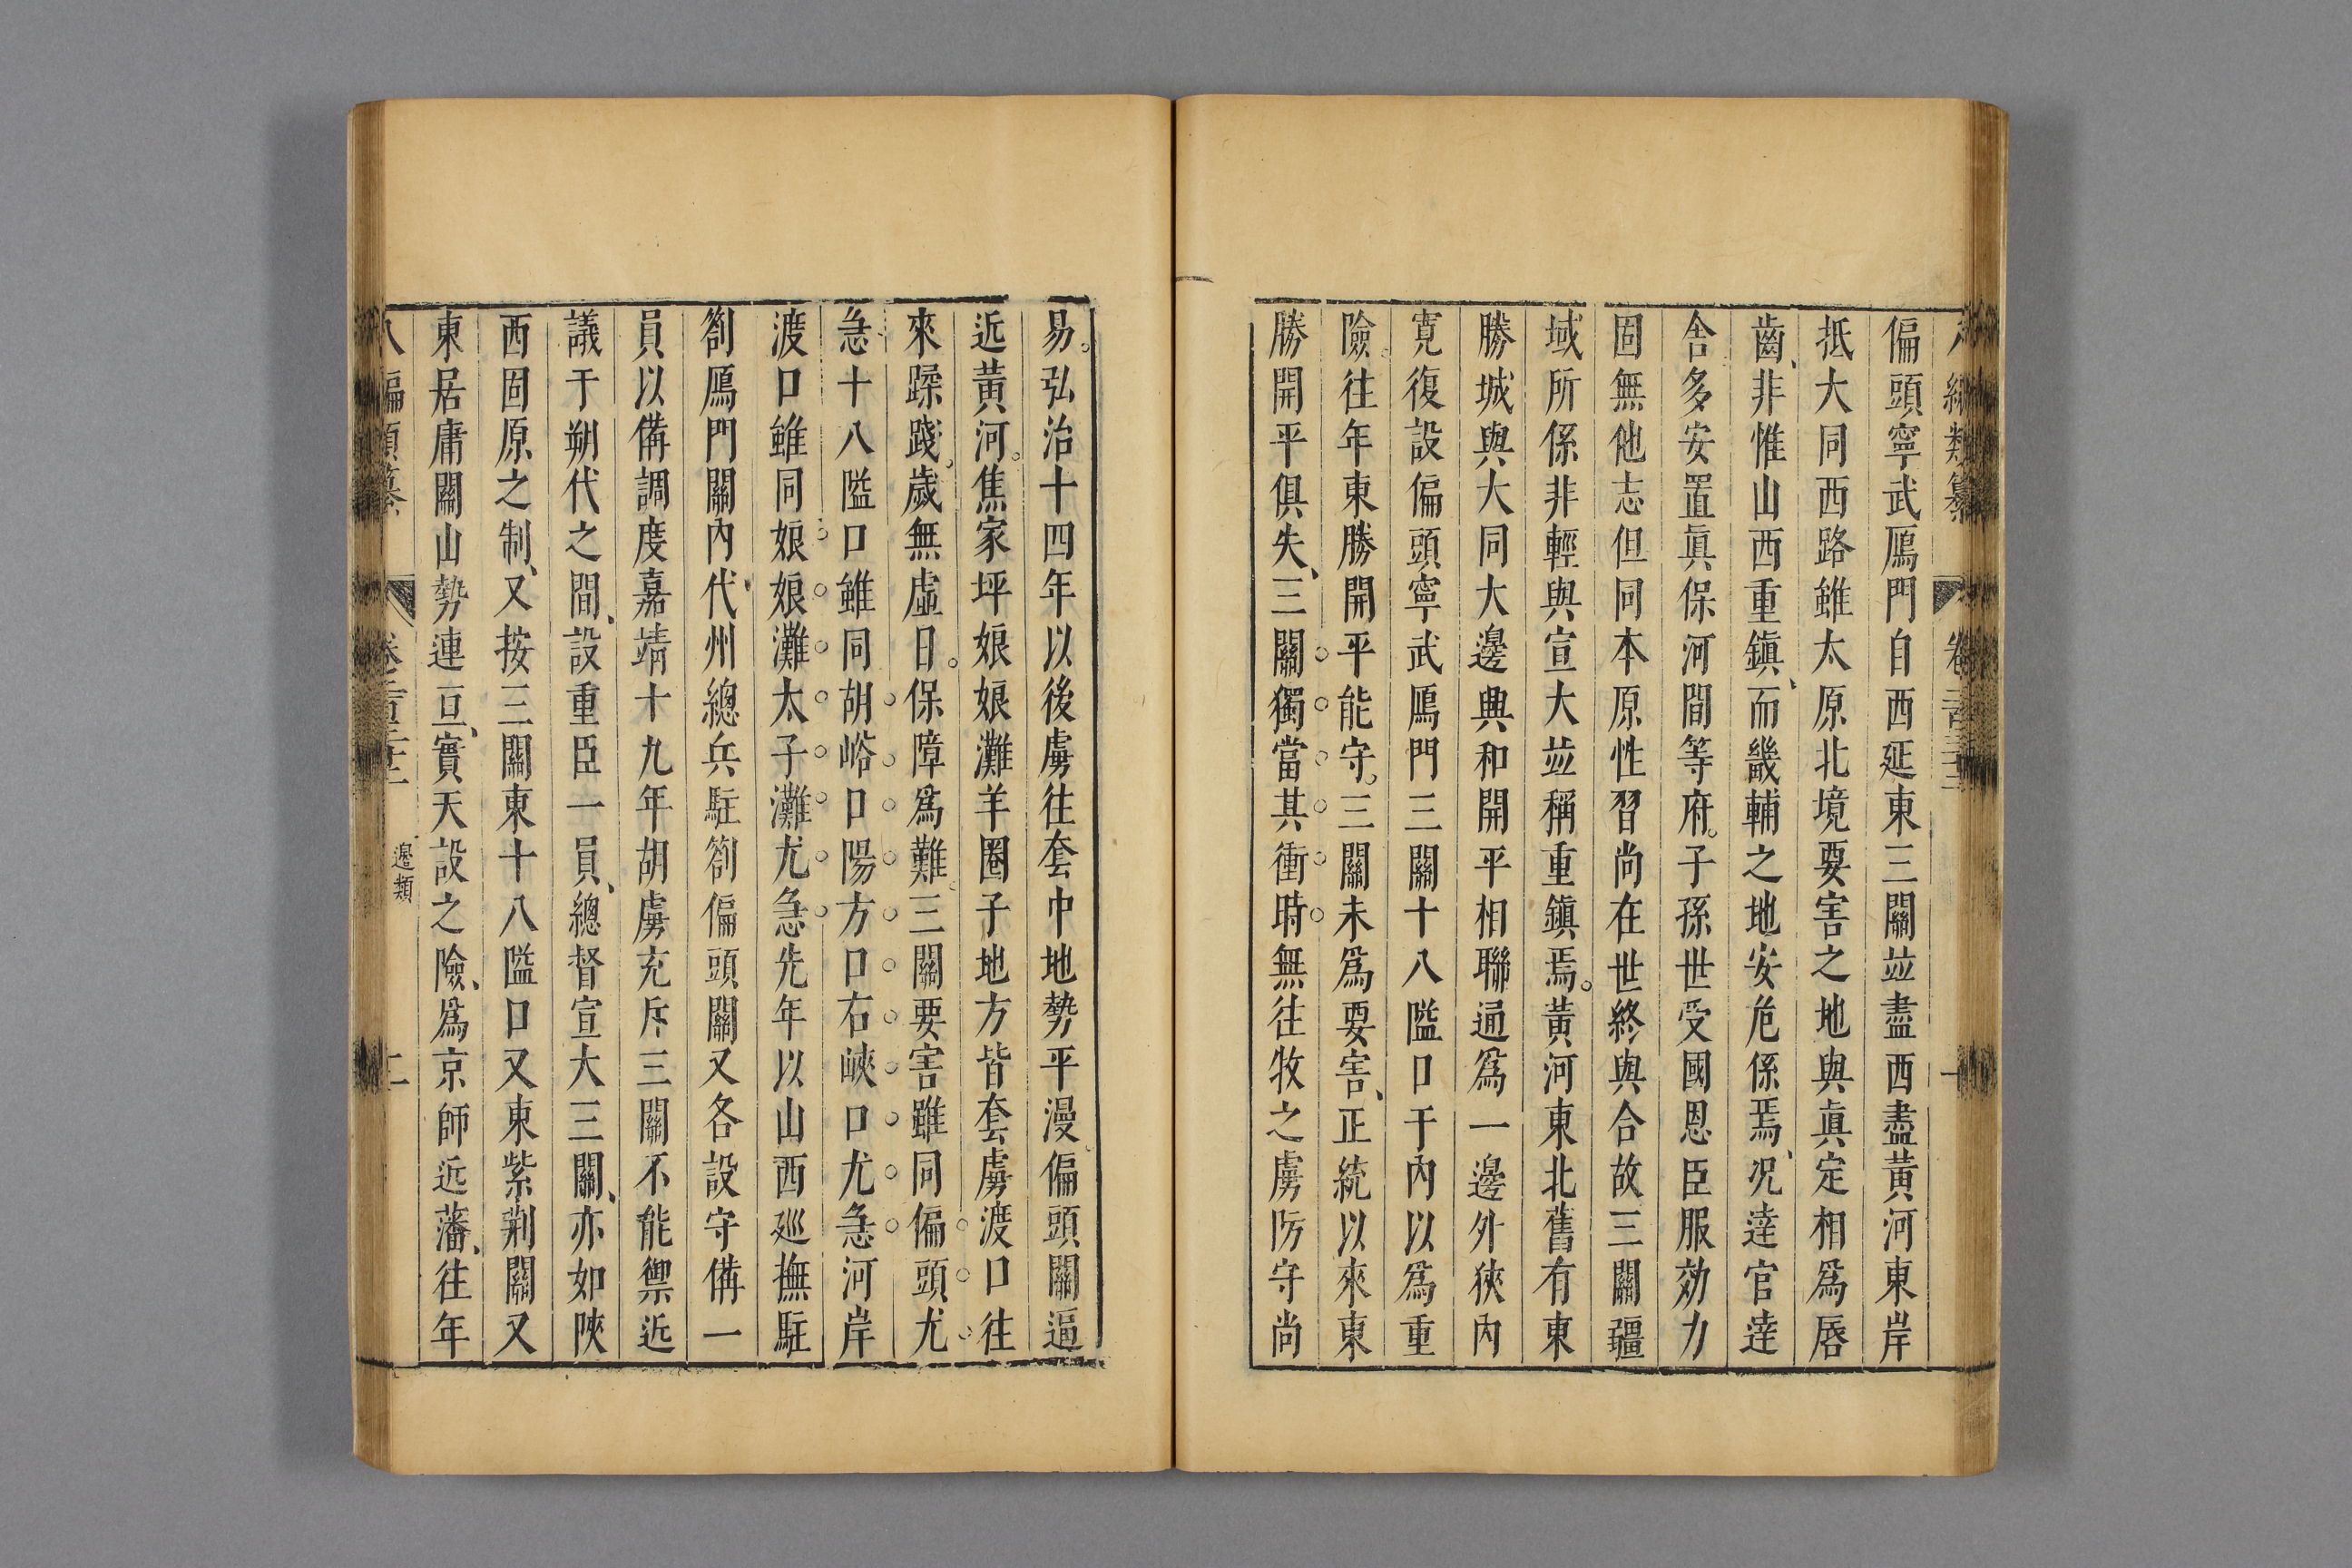 偏頭寧武鴈門自西延東三關並盡西盡黃河東岸
抵大同西路雖太原北境要害之地與眞定相爲唇
齒、非惟山西重鎭、而畿輔之地安危係焉、况達官達
舍多安置眞保河間等府。子孫世受國恩臣服効力
固無他志但同本原性習尚在世終與合故三關疆
域所係非輕與宣大並稱重鎭焉。黃河東北舊有東
勝城與大同大邊興和開平相聯通爲一邊外狹內
寬復設偏頭寧武鴈門三關十八隘口于內以爲重
險。往年東勝開平能守。三關未爲要害、正統以來東
勝開平俱失、三關獨當其衝時無往牧之虜防守尚
易。弘治十四年以後虜往套中地勢平漫偏頭關逼
近黃河。焦家坪娘娘灘羊圈子地方皆套虜渡口往
來蹂踐。歲無虛日。保障爲難。三關要害雖同偏頭尤
急十八隘口雖同胡峪口陽方口右峽口尤急河岸
渡口雖同娘娘灘太子灘尤急先年以山西廵撫駐
劄鴈門關內代州總兵駐劄偏頭關又各設守備一
員以備調度嘉靖十九年胡虜充斥三關不能禦近
議于朔代之間、設重臣一員、總督宣大三關、亦如陝
西固原之制、又按三關東十八隘口又東紫荆關又
東居庸關山勢連亘、實天設之險、爲京師近藩、往年
邊類